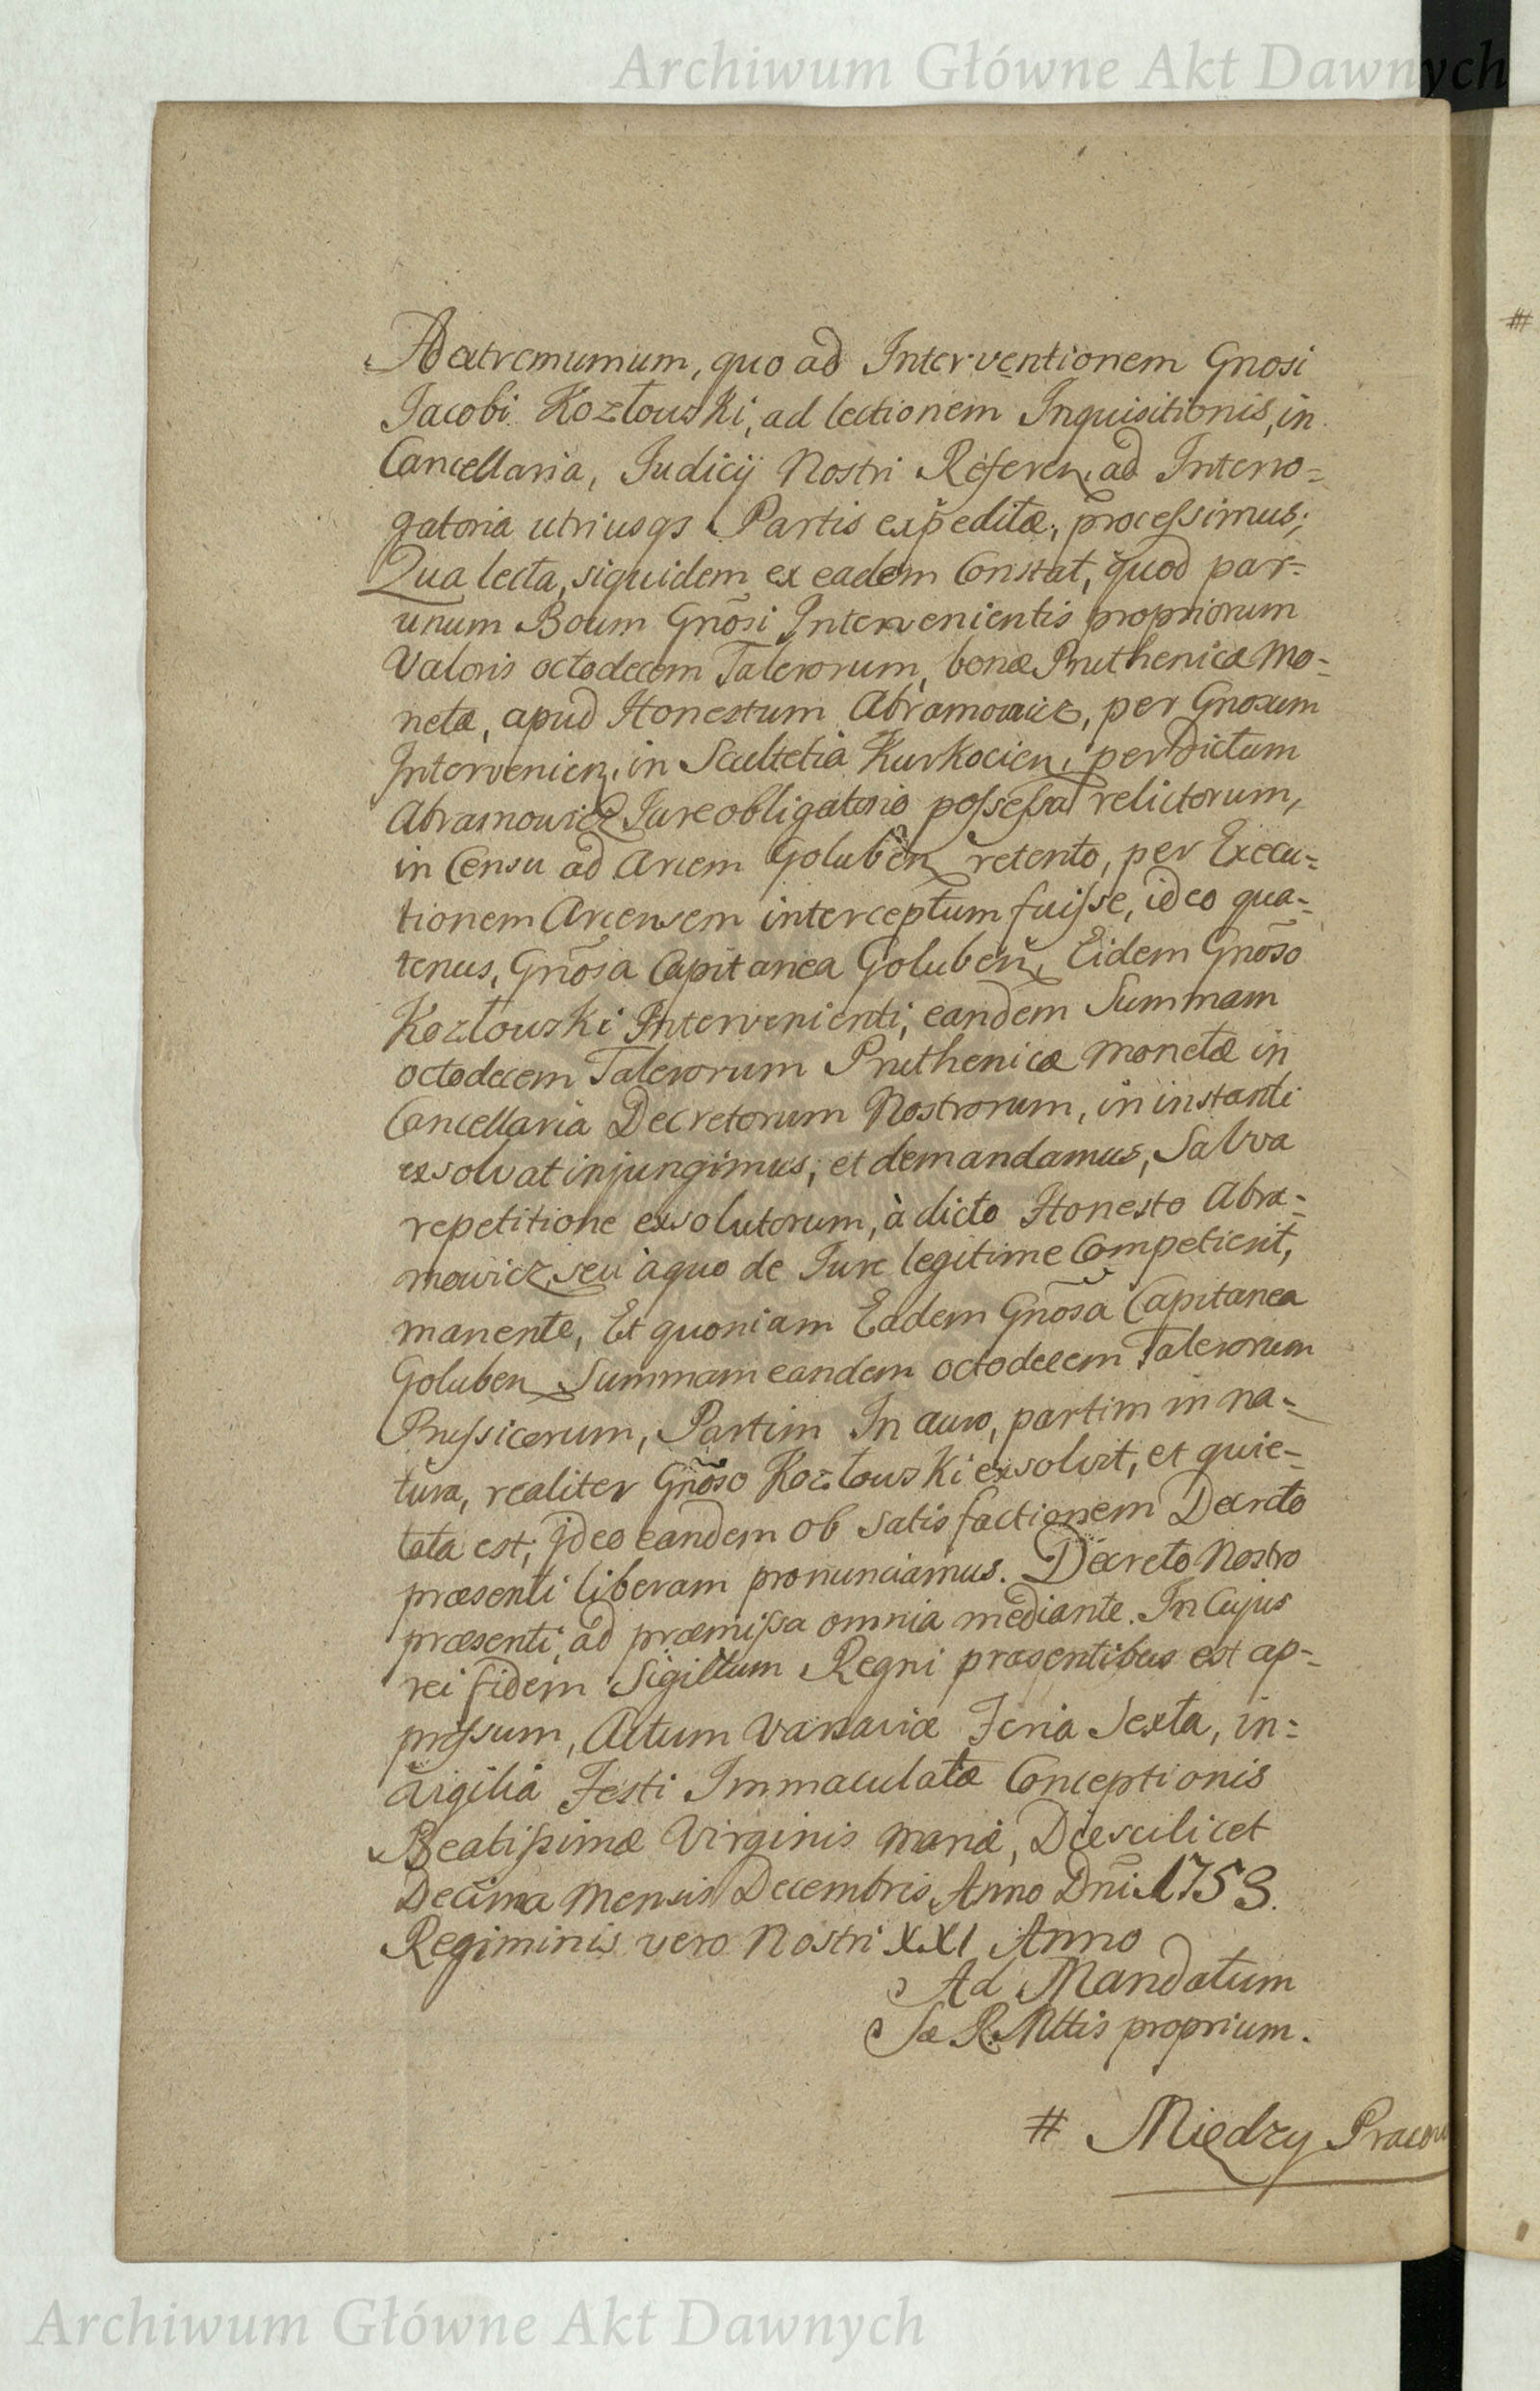 Archiwum Główne Akt Dawnych
Ad extremumum, quo ad Interventionem Gnosi
Jacobi Kozłowski, ad lectionem Inquisitionis, in
Cancellaria, Judicij Nostri Referen. ad Interro=
gatoria utriusqs Partis expeditæ, processimus;
Qua lecta, siquidem ex eadem Constat, quod par-
unum Boum Gnõsi Intervenientis propriorum
Valoris octodecem Talerorum, bonæ Pruthenicæ Mo-
netæ, apud Honestum Abramowicz, per Gnosum
Intervenien. in Scultetia Kurkocien. per dictum
Abramowicz Jure obligatorio possessa relictorum,
in Censu ad Arcem Goluben retento, per Execu=
tionem Arcensem interceptum fuisse, ideo qua=
tenus, Gnõsa Capitanea Goluben, Eidem Gnõso
Kozłowski Intervenienti, eandem Summam
octodecem Talerorum Pruthenicæ Monetæ in
Cancellaria Decretorum Nostrorum, in instanti
exsolvat injungimus, et demandamus, Salva
repetitione exsolutorum, à dicto Honesto Abra=
mowicz, seu àquo de Jure legitime Competierit,
manente, Et quoniam Eadem Gnõsa Capitanea
Goluben Summam eandem octodecem Talerorum
Prussicorum, Partim In auro, partim in na=
tura, realiter Gnõso Kozłowski exsolvit, et quie=
tata est; Ideo eandem ob satisfactionem Decreto
præsenti liberam pronunciamus. Decreto Nostro
præsenti, ad præmissa omnia mediante. In Cujus
rei fidem Sigillum Regni præsentibus est ap=
pressum, Actum Varsaviæ Feria Sexta, in=
Vigilia Festi Immaculatæ Conceptionis
Beatissimæ Virginis Mariæ, Die scilicet
Decima Mensis Decembris Anno Dñi 1753.
Regiminis vero Nostri XXI Anno
Ad Mandatum
Sæ R. Mttis proprium.
# Między Pracow
Archiwum Główne Akt Dawnych